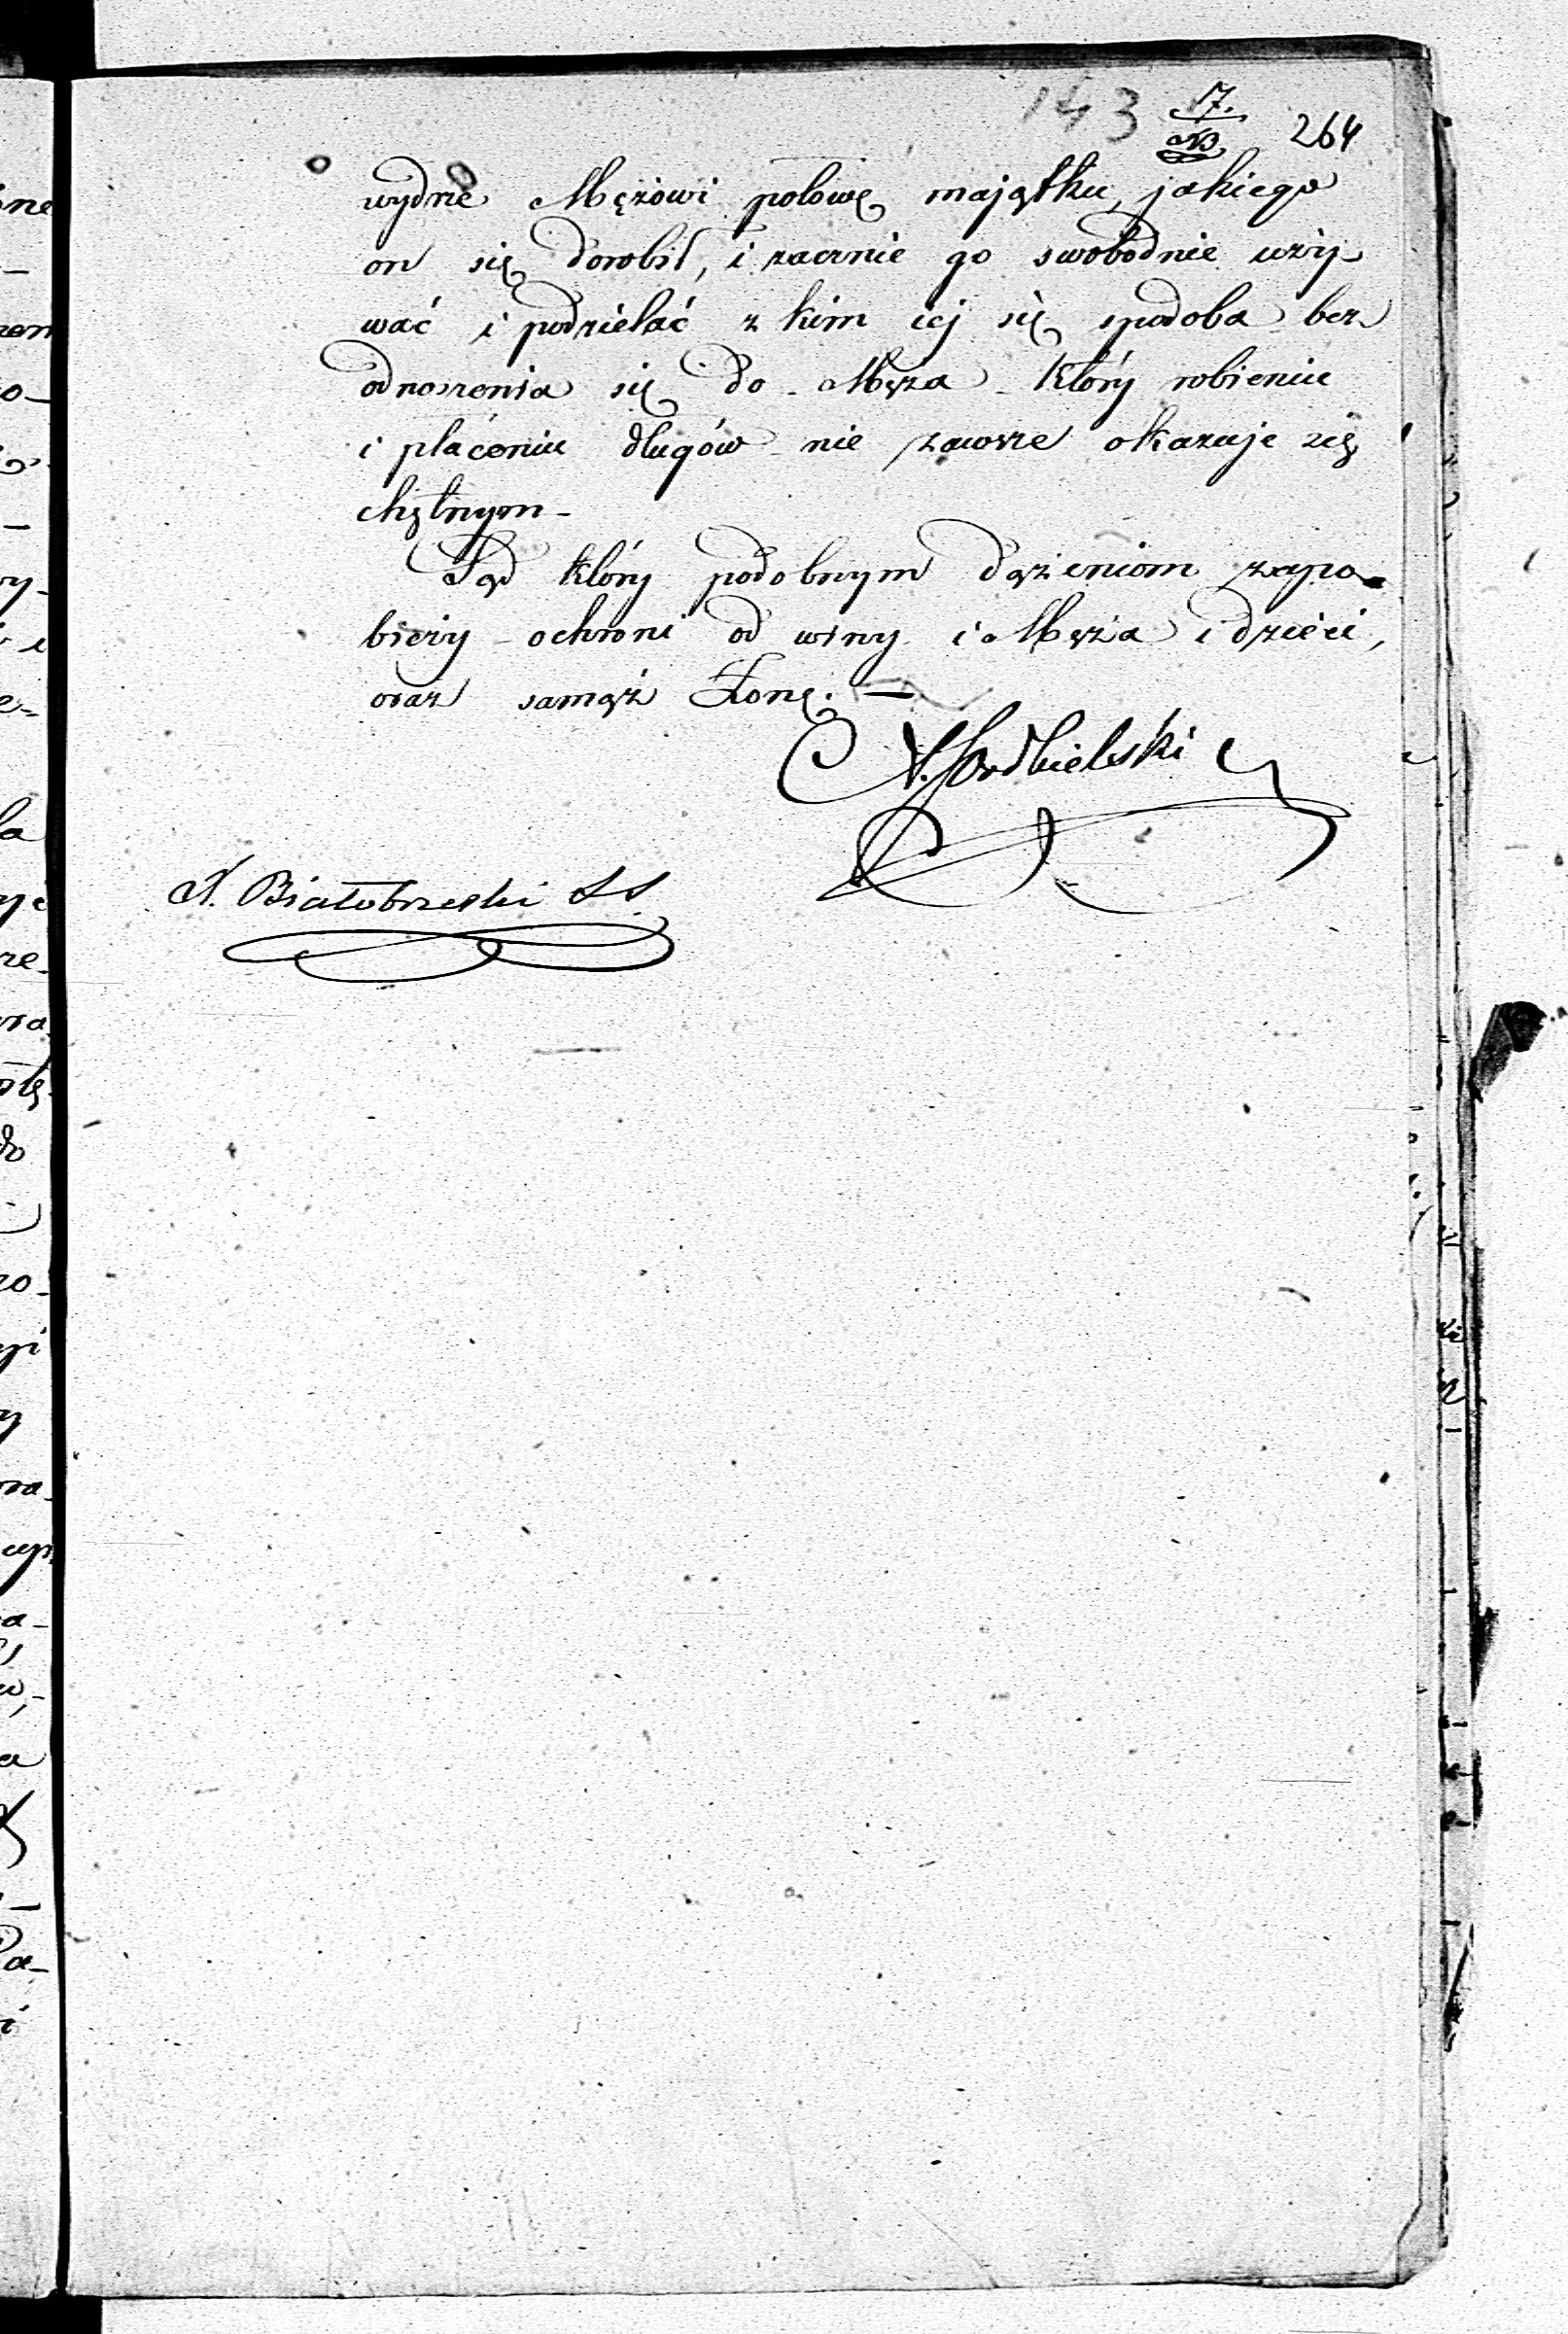 143 7. 264
wydrze Mężowi połowę majątku, jakiego
on się dorobił, i zacznie go swobodnie uży-
wać i podzielać z kim jej się spodoba bez
odnoszenia się do Męża który robieniu
i płaceniu długów nie zawsze okazuje się
chętnym -
Sąd który podobnym dążeniom zapo-
bieży ochroni od winy i Męża i dzieci,
oraz samąż Żonę. —
Podbielski
J. Białobrzeski